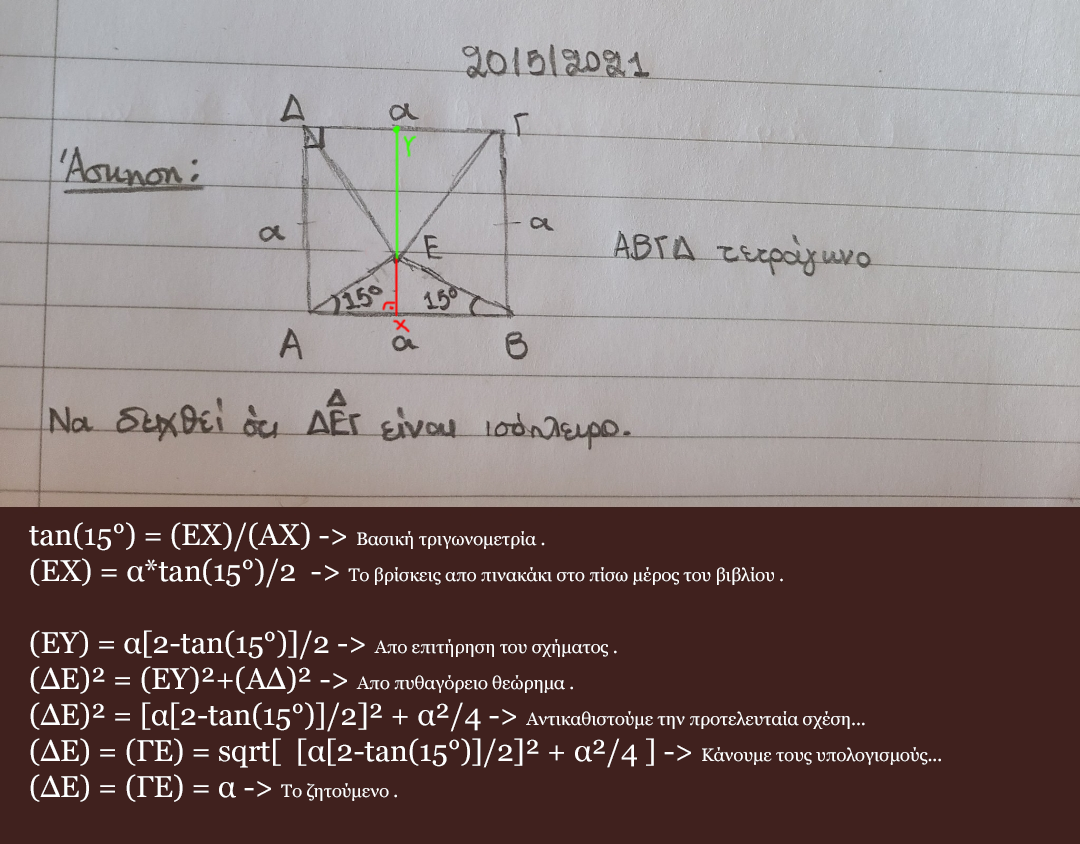 20/5/2021
Δ α Γ
Y
Άσκηση:
α E α
ΑΒΓΔ τετράγωνο
15° 15°
x
A α B
Να δειχθεί ότι ΔΕΓ είναι ισόπλευρο.
tan(15°) = (ΕΧ)/(ΑΧ) -> Βασική τριγωνομετρία .
(ΕΧ) = α*tan(15°)/2 -> Το βρίσκεις απο πινακάκι στο πίσω μέρος του βιβλίου .
(ΕΥ) = α[2-tan(15°)]/2 -> Απο επιτήρηση του σχήματος .
(ΔΕ)² = (ΕΥ)²+(ΑΔ)² -> Απο πυθαγόρειο θεώρημα .
(ΔΕ)² = [α[2-tan(15°)]/2]² + α²/4 -> Αντικαθιστούμε την προτελευταία σχέση...
(ΔΕ) = (ΓΕ) = sqrt[ [α[2-tan(15°)]/2]² + α²/4 ] -> Κάνουμε τους υπολογισμούς...
(ΔΕ) = (ΓΕ) = α -> Το ζητούμενο .